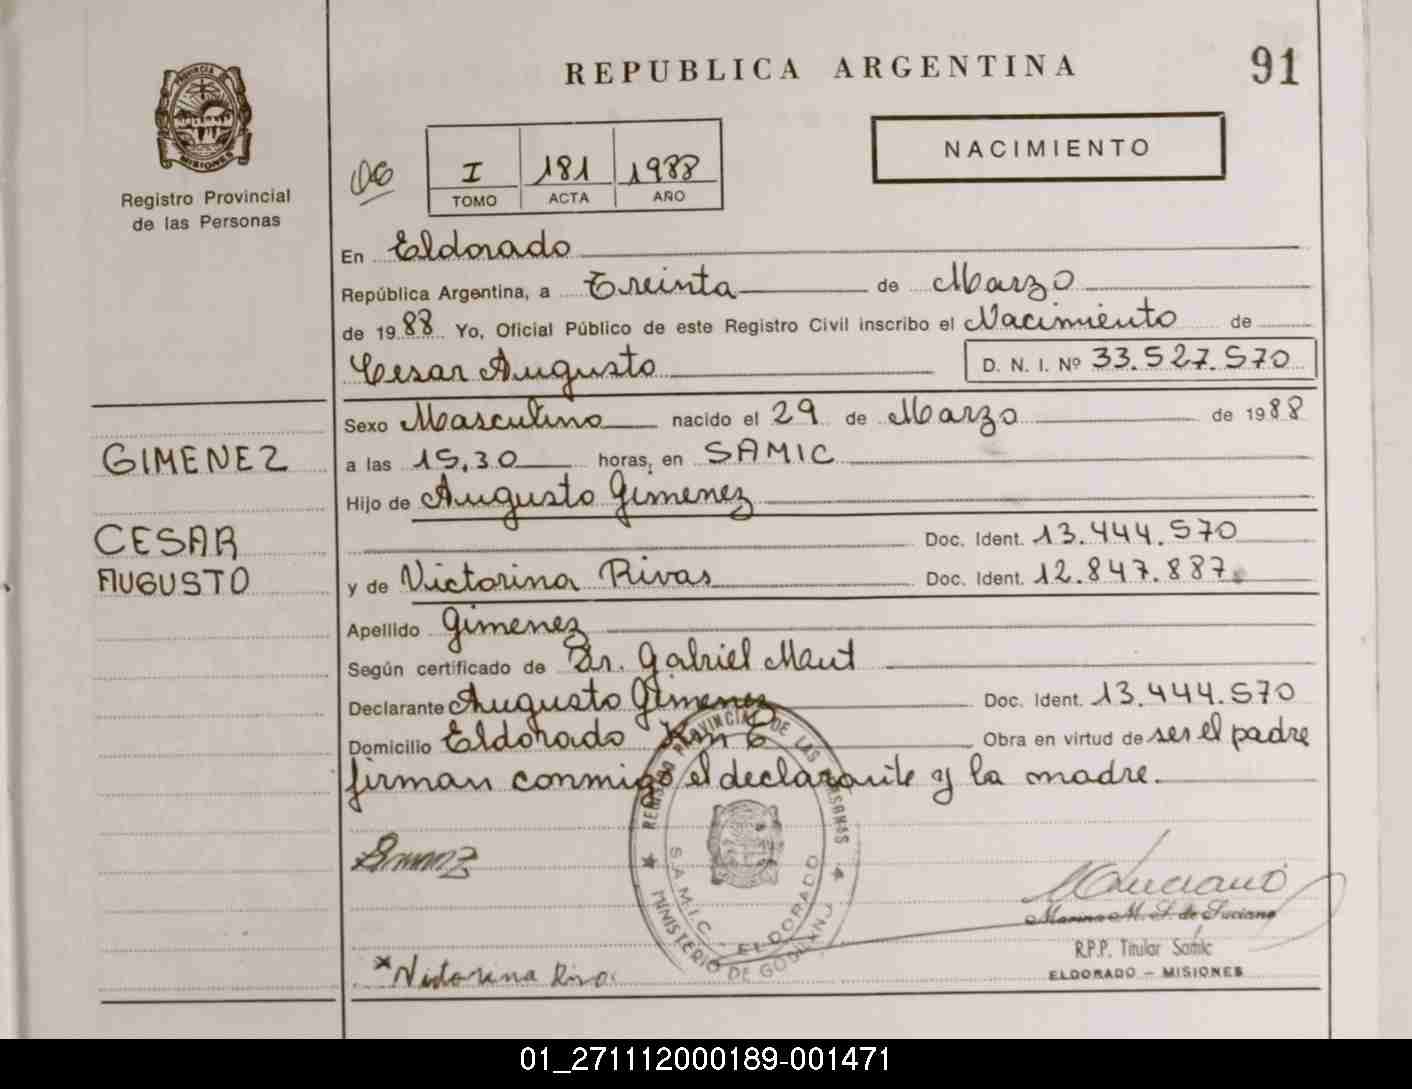 REPUBLICA ARGENTINA
91
PROVINCIA DE
MISIONES
Registro Provincial
de las Personas
I 181 1988
TOMO ACTA AÑO
NACIMIENTO
En Eldorado
República Argentina, a Treinta de Marzo
de 1988 Yo, Oficial Público de este Registro Civil inscribo el Nacimiento de
Cesar Augusto D. N. I. Nº 33.527.570
Sexo Masculino nacido el 29 de Marzo de 1988
GIMENEZ
a las 15,30 horas, en SAMIC
Hijo de Augusto Gimenez
CESAR
AUGUSTO
Doc. Ident. 13.444.570
y de Victorina Rivas Doc. Ident. 12.847.887
Apellido Gimenez
Según certificado de Dr. Gabriel Maut
Declarante Augusto Gimenez Doc. Ident. 13.444.570
Domicilio Eldorado Km Obra en virtud de ser el padre
firman conmigo el declarante y la madre.
REGISTRO PROVINCIAL DE LAS PERSONAS
S.A.M.I.C. - ELDORADO
MINISTERIO DE GOBIERNO
Luciano
Marina M. S. de Luciano
R.P.P. Titular Samic
ELDORADO - MISIONES
Victorina
01_271112000189-001471